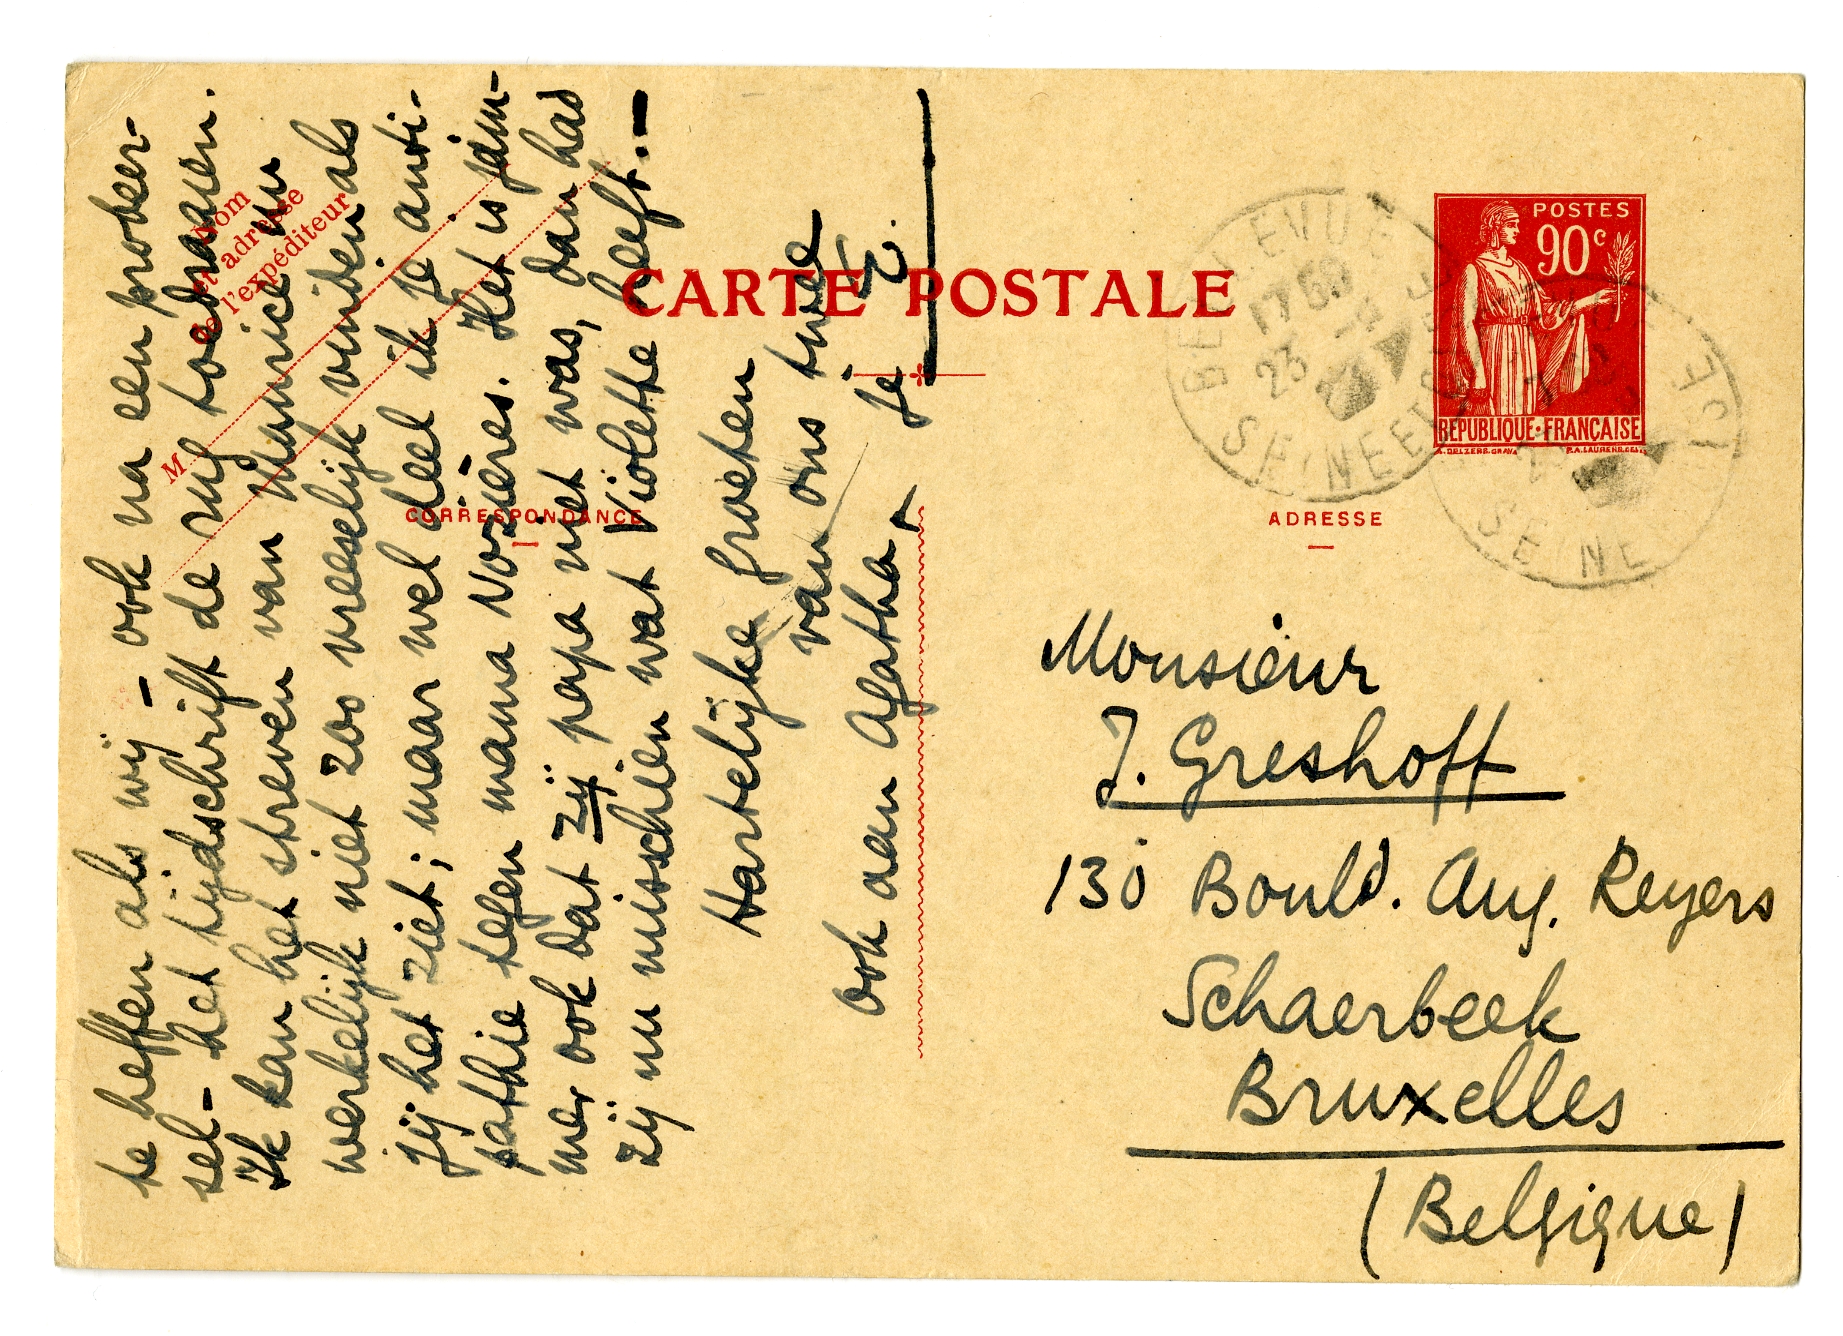 te heffen als wij - ook na een proker-
sel - het tijdschrift de rug toedraaien.
Ik kan het streven van Maurice nu
werkelijk niet zoo vreeselijk vinden als
jij het ziet; maar wel deel ik je anti-
pathie tegen mama Nozières. Het is jam-
mer ook dat zij papa niet was, dan had
zij nu misschien wat Violette heeft. -
Hartelijke groeten
van ons twee
ook aan Agatha, je E.
Nom
et adresse
de l'expéditeur
M
CARTE POSTALE
CORRESPONDANCE
ADRESSE
POSTES
90c
REPUBLIQUE·FRANÇAISE
BELLEVUE
17 50
23
SEINE ET OISE
SEINE
Monsieur
J. Greshoff
130 Bould. Aug. Reyers
Schaerbeek
Bruxelles
(Belgique)